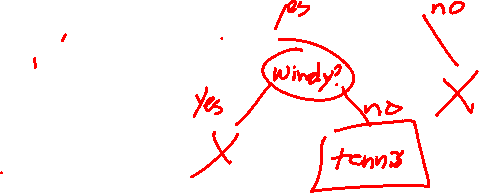 yes no
windy?
yes no
tennis